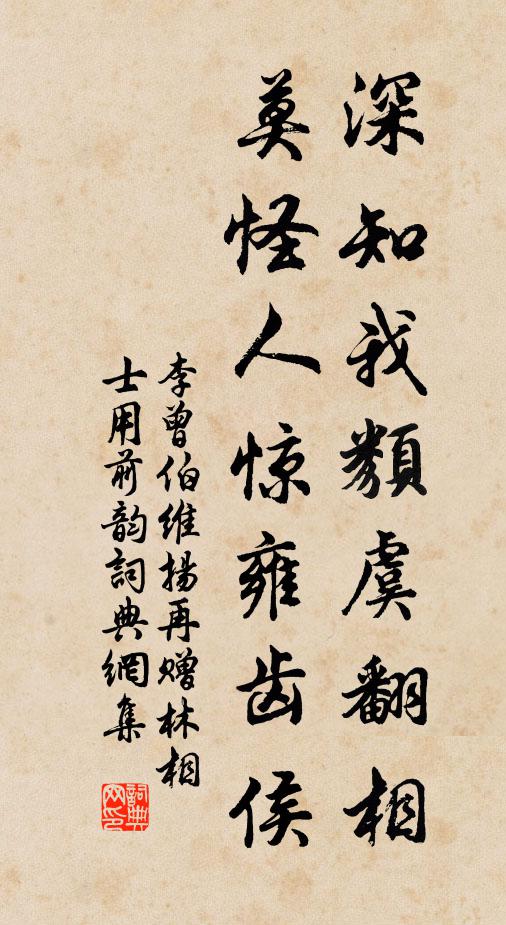 深知我類虞翻相
莫怪人惊雍齿侯
李曾伯維揚再贈林相
士用前韵詞典網集
詞典
网印